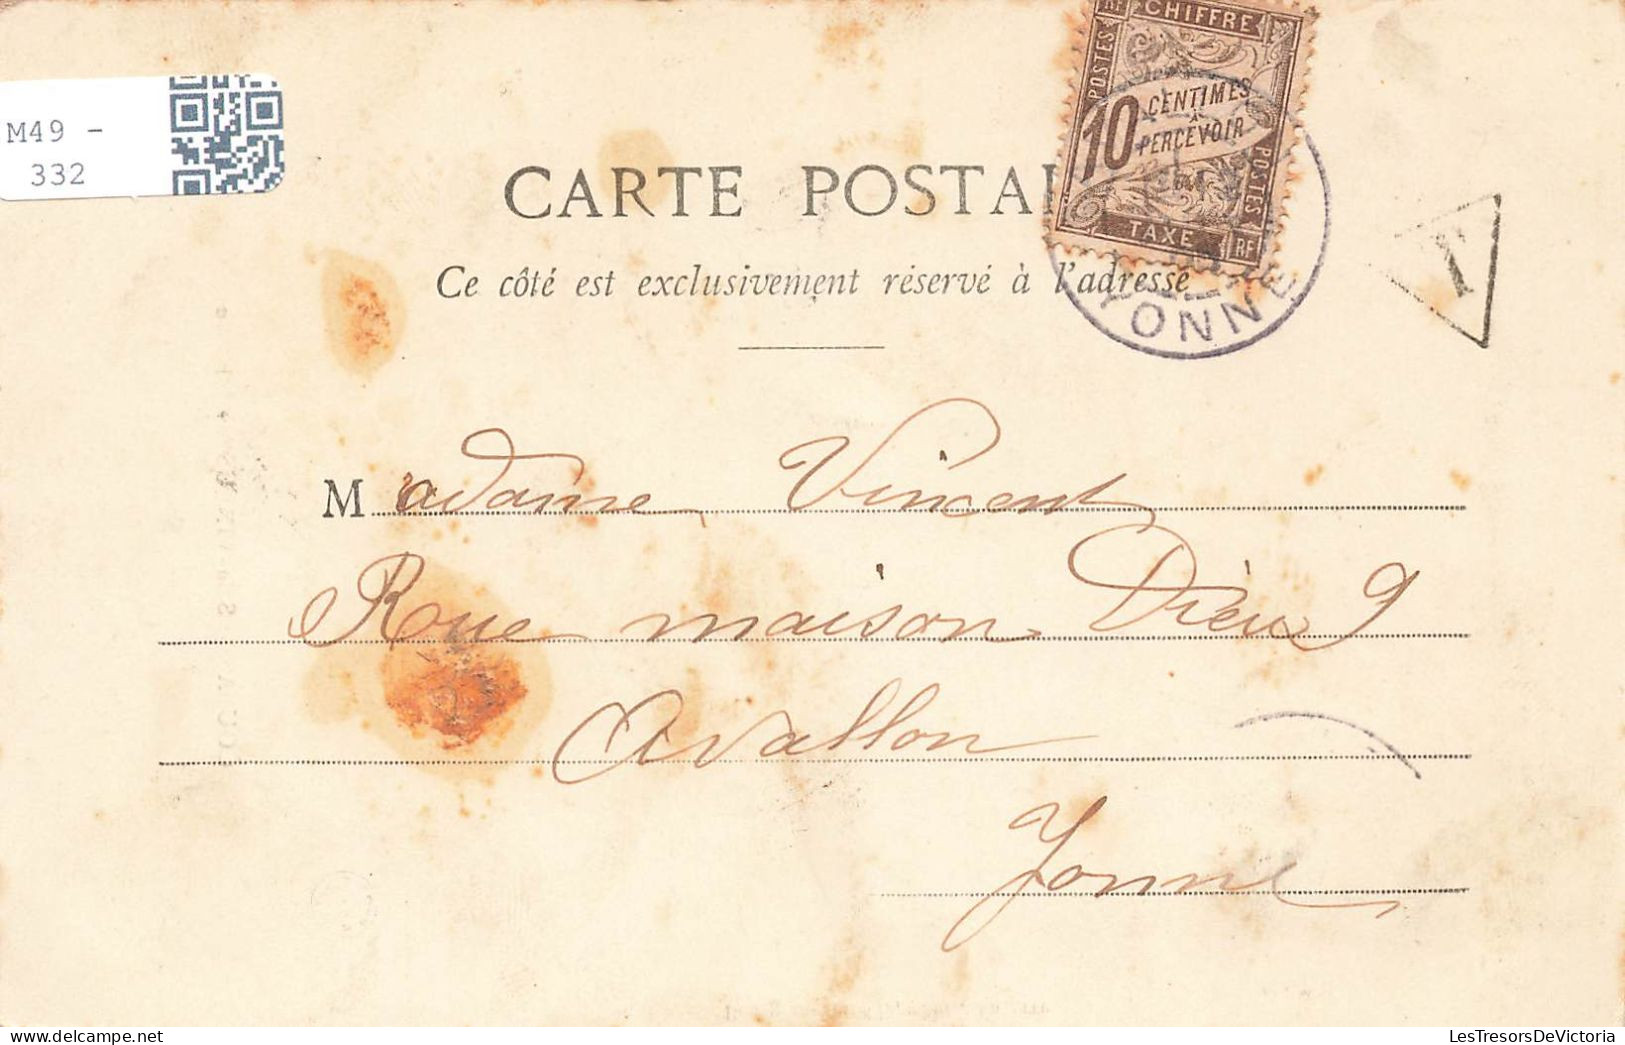 RF CHIFFRE
POSTES
10 CENTIMES
A
PERCEVOIR
POSTES
TAXE RF
M49 -
332
CARTE POSTAL
T
Ce côté est exclusivement réservé à l'adresse
YONNE
Madame Vincent
Rue maison Dieu 9
Avallon
Yonne
LesTresorsDeVictoria